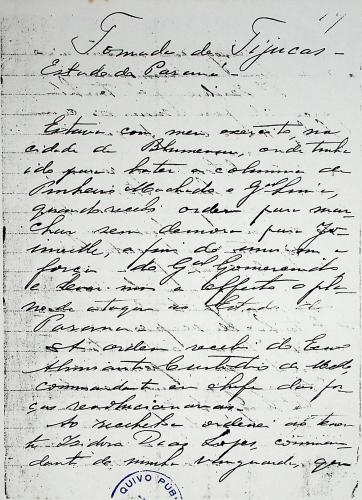 17
Tomada de Tijucas -
Estado do Paraná -
Estava com meu exercito na
cidade de Blumenau, onde tinha
ido para bater a columna de
Pinheiro Machado e Gal Lima,
quando recebi ordem para mar
char sem demora para
a fim de unir-me a
força do Gal Gomercindo
e levar a effeito o pla
no de atacar o Estado do
Paraná -
A ordem recebi do Exmo
Almirante Custodio de Mello
commandante em chefe das for
ças revolucionarias.
Ao recebel-a ordenei ao tenen
te Izidoro Dias Lopes, comman
dante de minha vanguarda, que
QUIVO PÚB